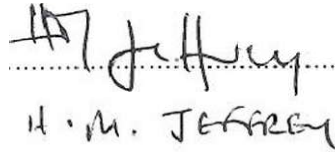 HM Jeffrey
H. M. JEFFREY